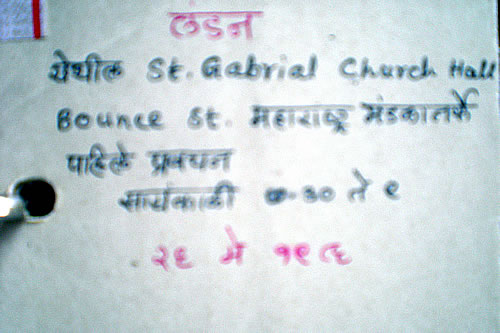 लंडन
येथील St. Gabrial Church Hall
Bounce St. महाराष्ट्र मंडळातर्फे
पहिले प्रवचन
सायंकाळी ७-३० ते ९
२६ मे १९८६